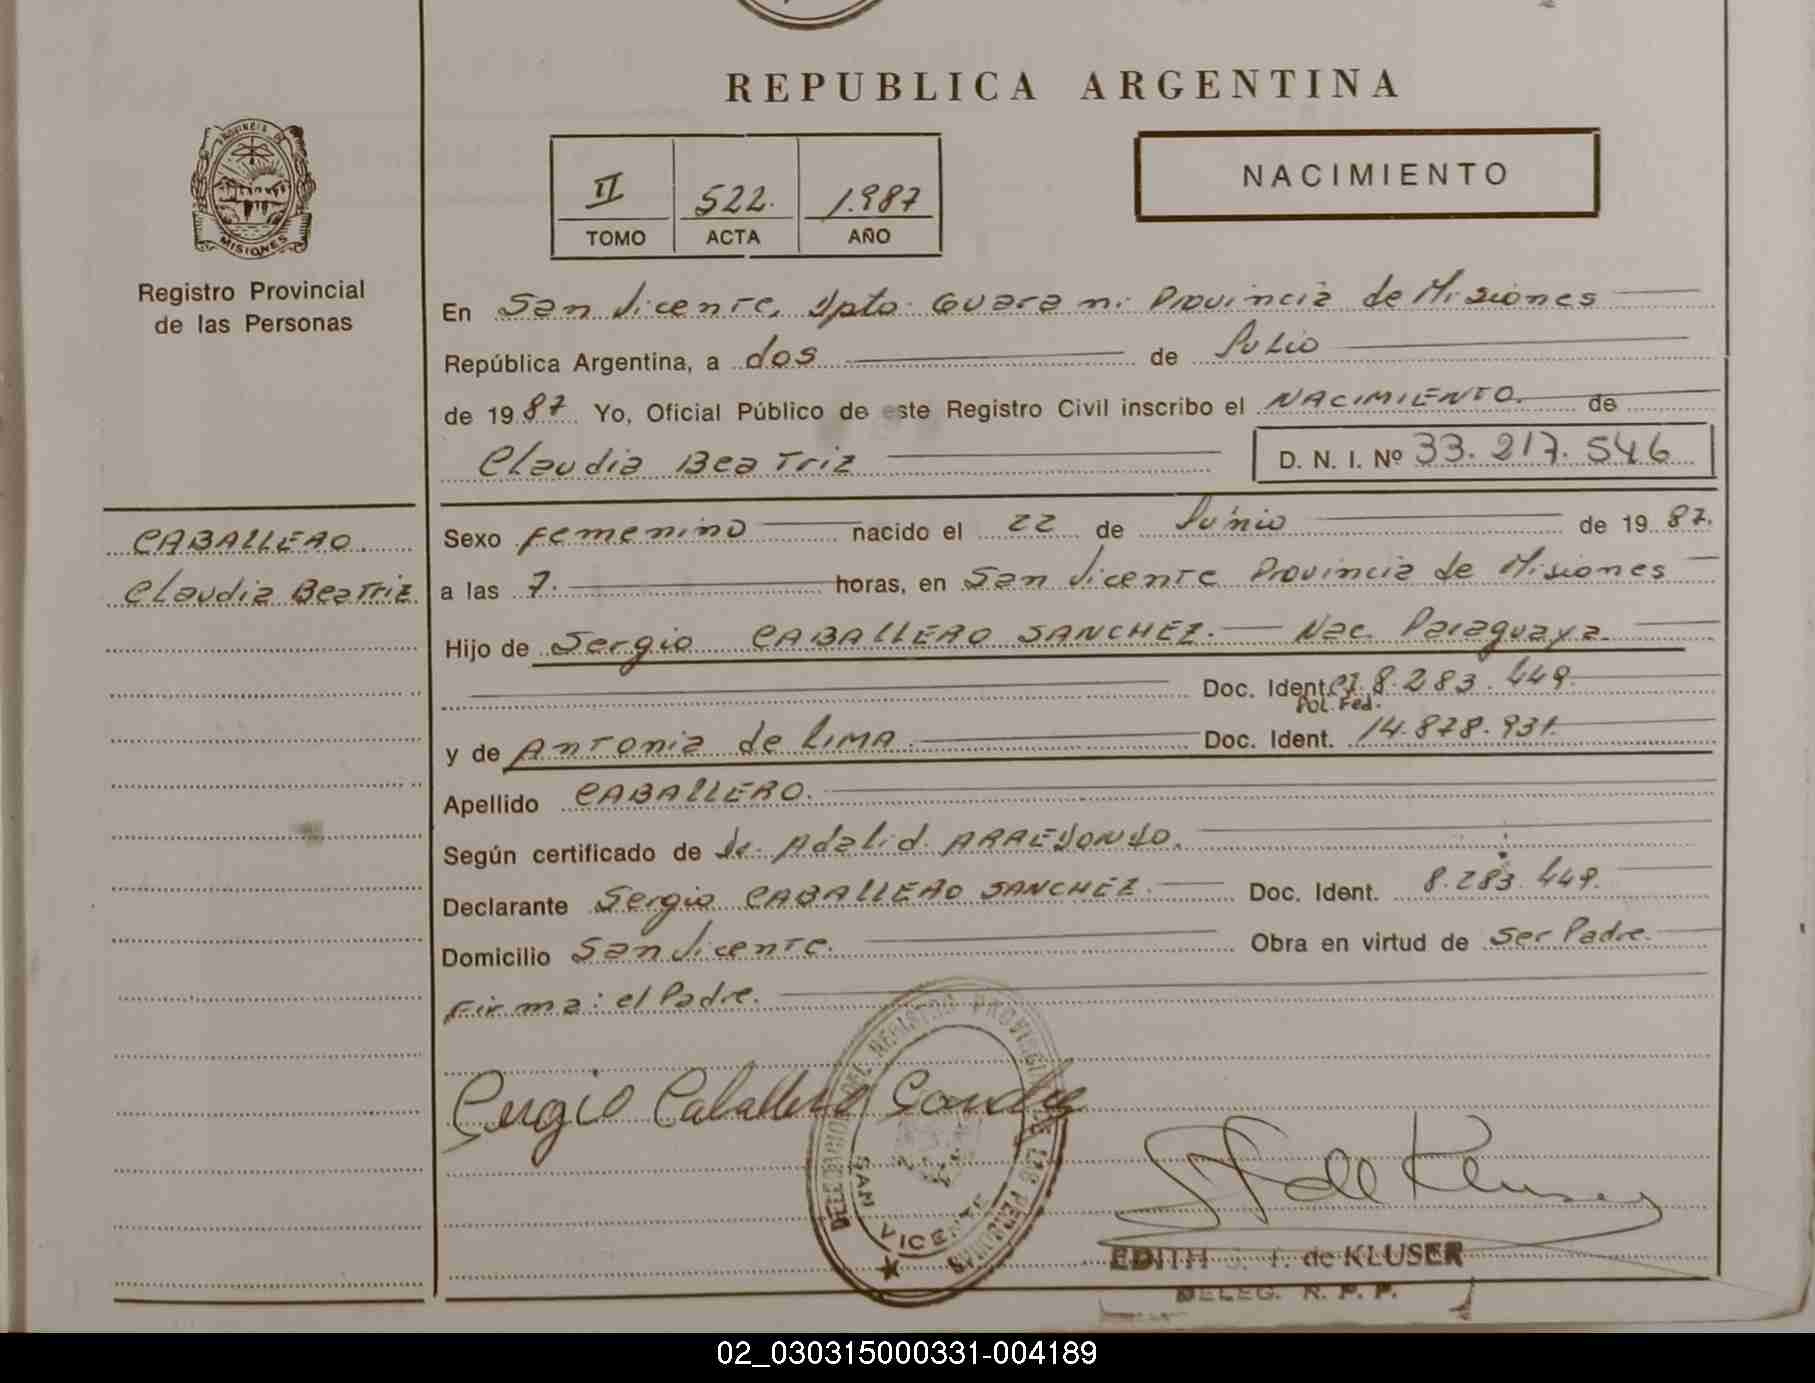 REPUBLICA ARGENTINA
PROVINCIA DE
MISIONES
Registro Provincial
de las Personas
II 522. 1.987
TOMO ACTA AÑO
NACIMIENTO
En San Vicente, Dpto. Guarani Provincia de Misiones
República Argentina, a dos de Julio
de 19 87 Yo, Oficial Público de este Registro Civil inscribo el NACIMIENTO. de
Claudia Beatriz D. N. I. Nº 33.217.546
CABALLERO.
Claudia Beatriz
Sexo femenino nacido el 22 de Junio de 19 87.
a las 7. horas, en San Vicente Provincia de Misiones
Hijo de Sergio CABALLERO SANCHEZ. Nac. Paraguaya.
Doc. Ident. CI. 8.283.449.
Pol. Fed.
y de Antonia de LIMA. Doc. Ident. 14.878.931.
Apellido CABALLERO.
Según certificado de Dr. Adalid ARREDONDO.
Declarante Sergio CABALLERO SANCHEZ. Doc. Ident. 8.283.449.
Domicilio San Vicente. Obra en virtud de Ser Padre.
Firma: el Padre.
Sergio Caballero Sanchez
DELEGACION DEL REGISTRO PROVINCIAL DE LAS PERSONAS
SAN VICENTE
de Kluser
EDITH F. de KLUSER
DELEG. R. P. P.
02_030315000331-004189